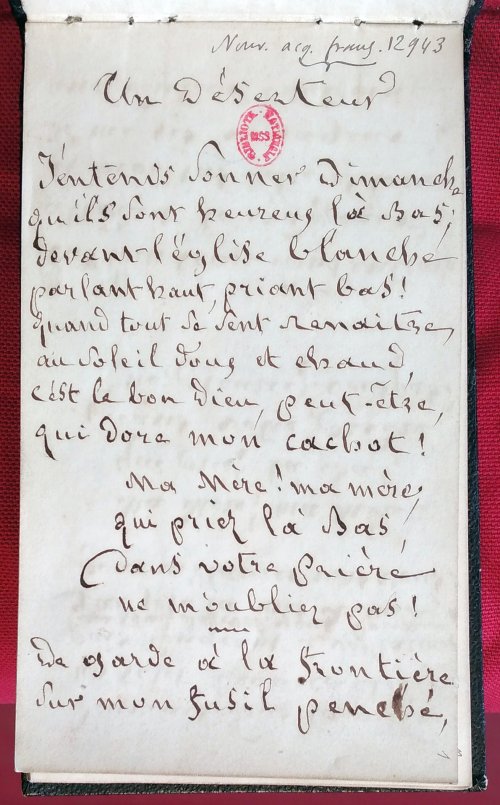 Nouv. acq. franç. 12943
Un Déserteur
BIBLIOTH. NATIONALE MSS
J'entends sonner Dimanche
qu'ils sont heureux là Bas,
devant l'église blanche
parlant haut, priant bas!
quand tout se sent renaître,
au soleil doux et chaud,
c'est le bon Dieu, peut-être,
qui dore mon cachot!
Ma Mère! ma mère,
qui priez là Bas,
dans votre prière
ne m'oubliez pas!
De garde à la frontière
sur mon fusil penché,